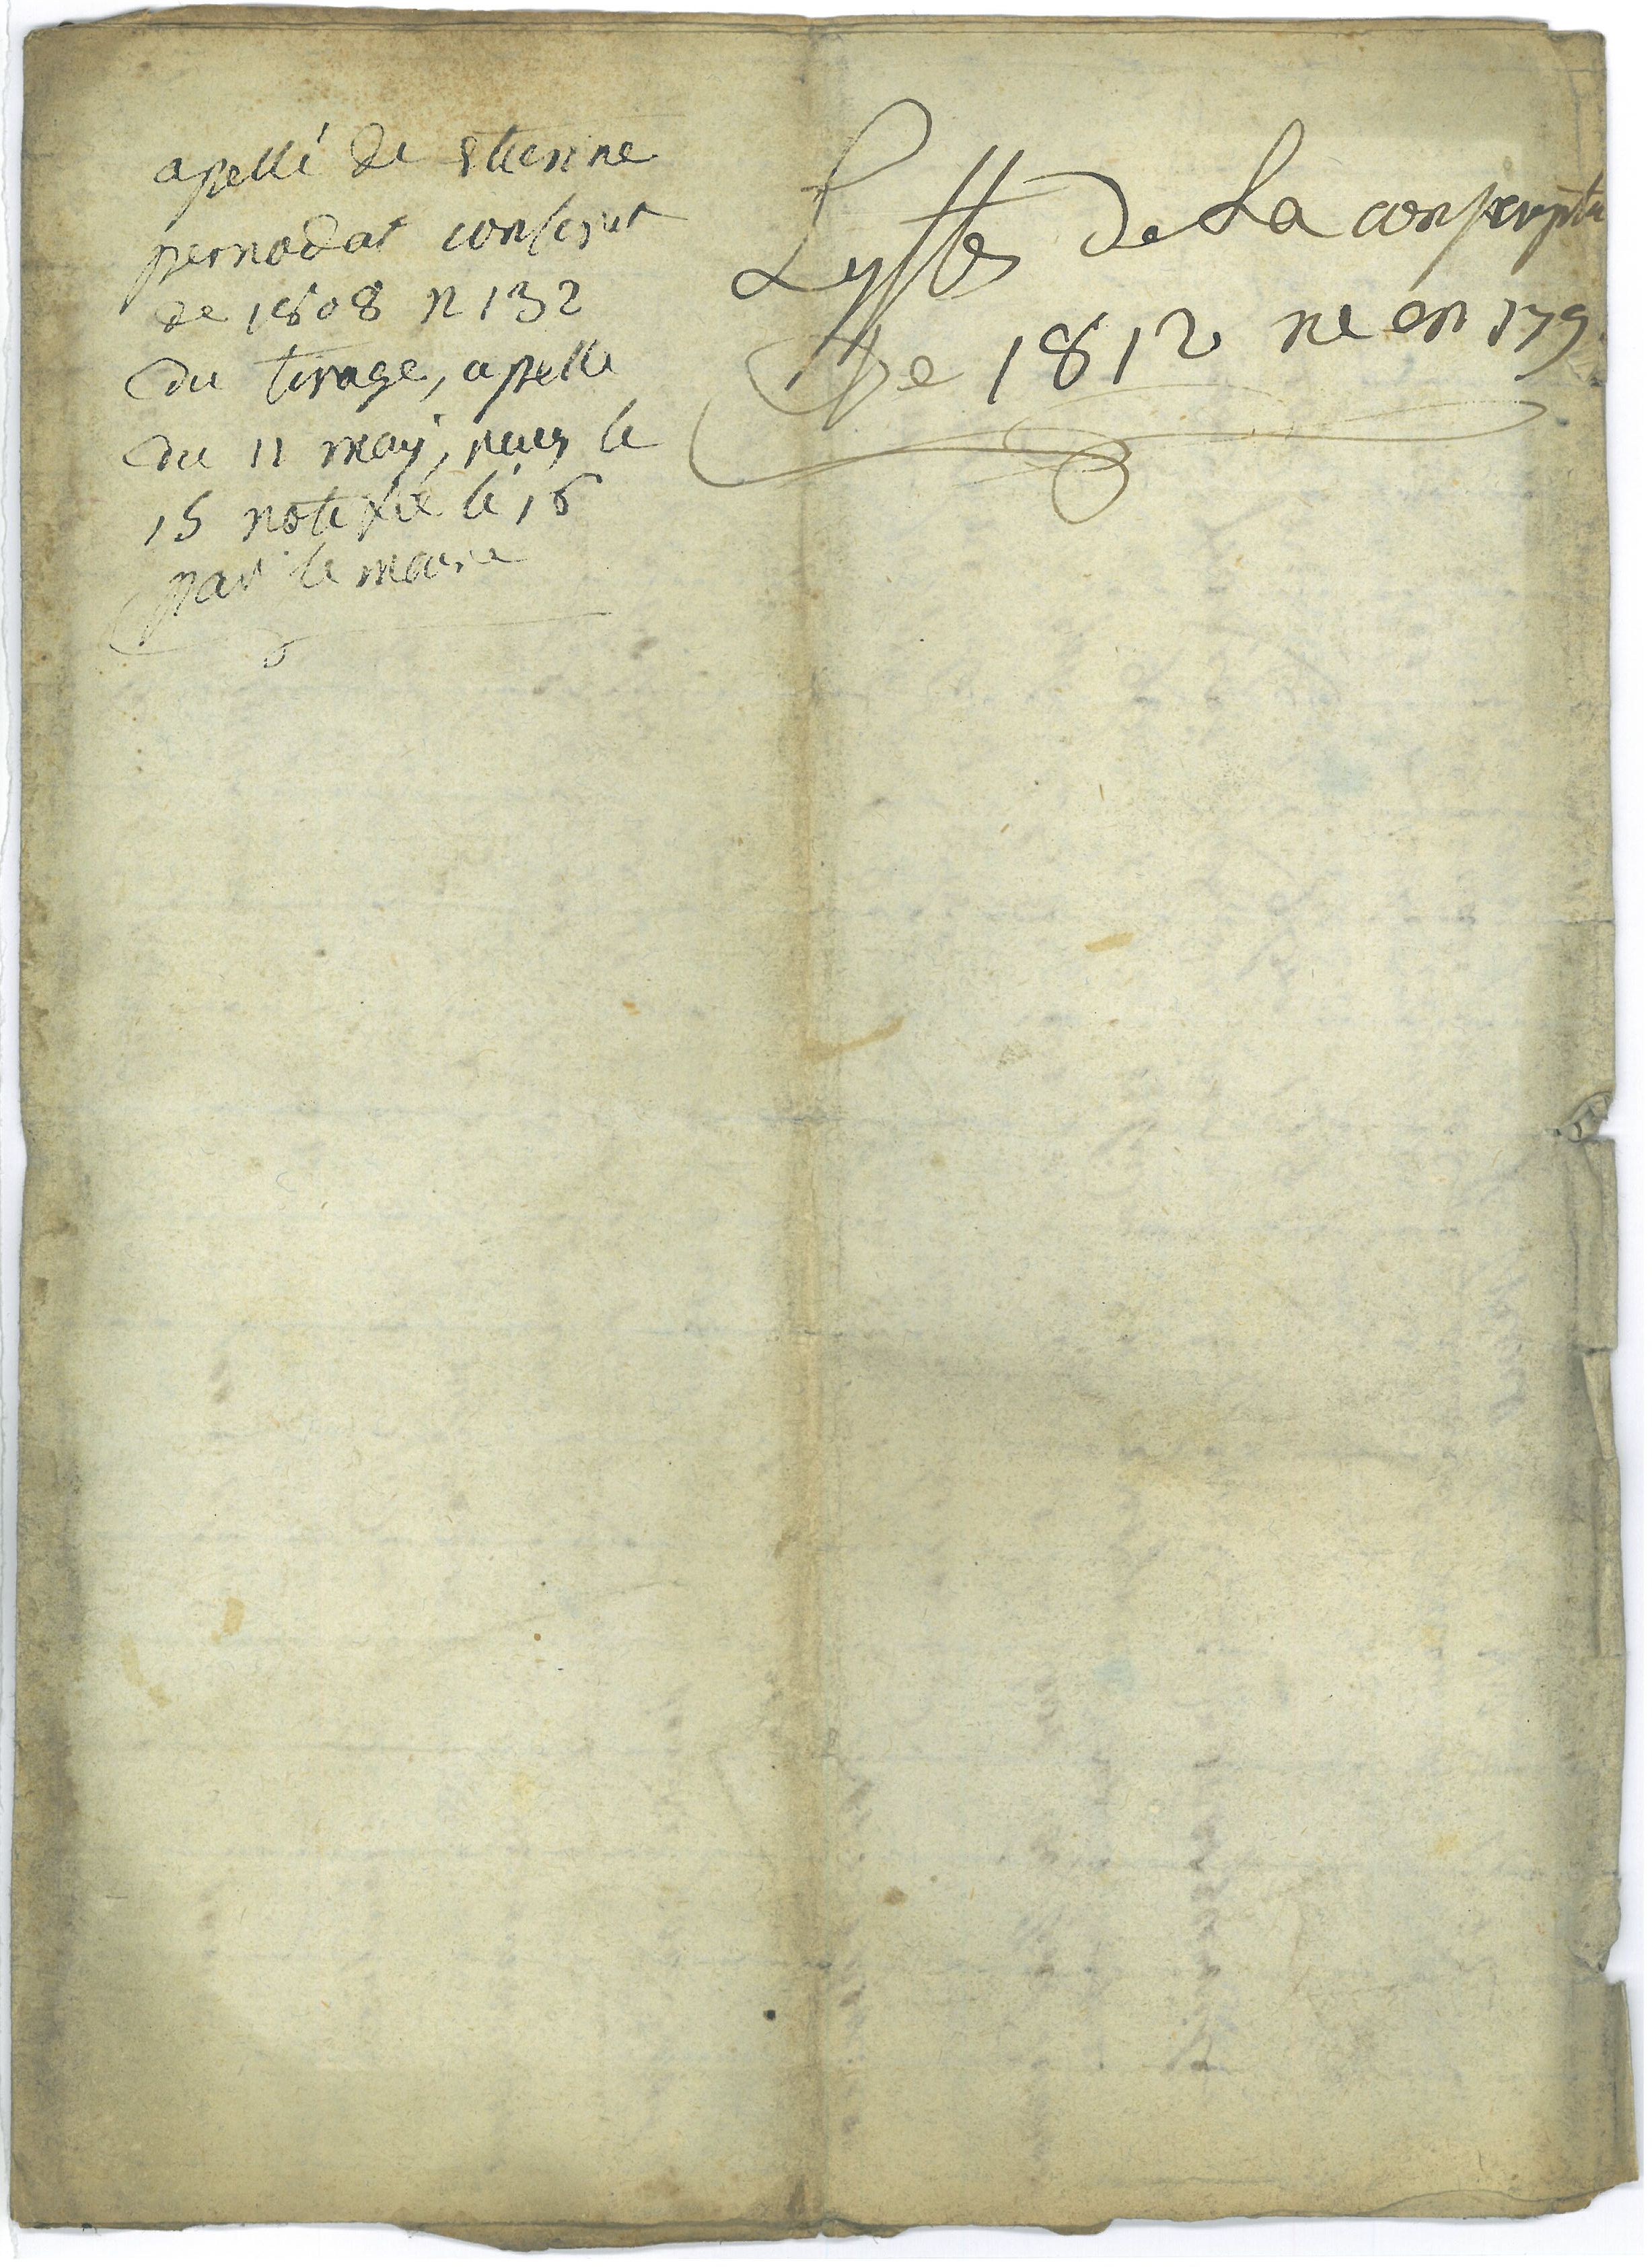 apellé de etienne
pernodat conscrit
de 1808 n 132
du tirage, apelle
du 11 may, reçu le
15 notiffié le 16
par le maire
Lyste de La conscripti
de 1812 né en 179